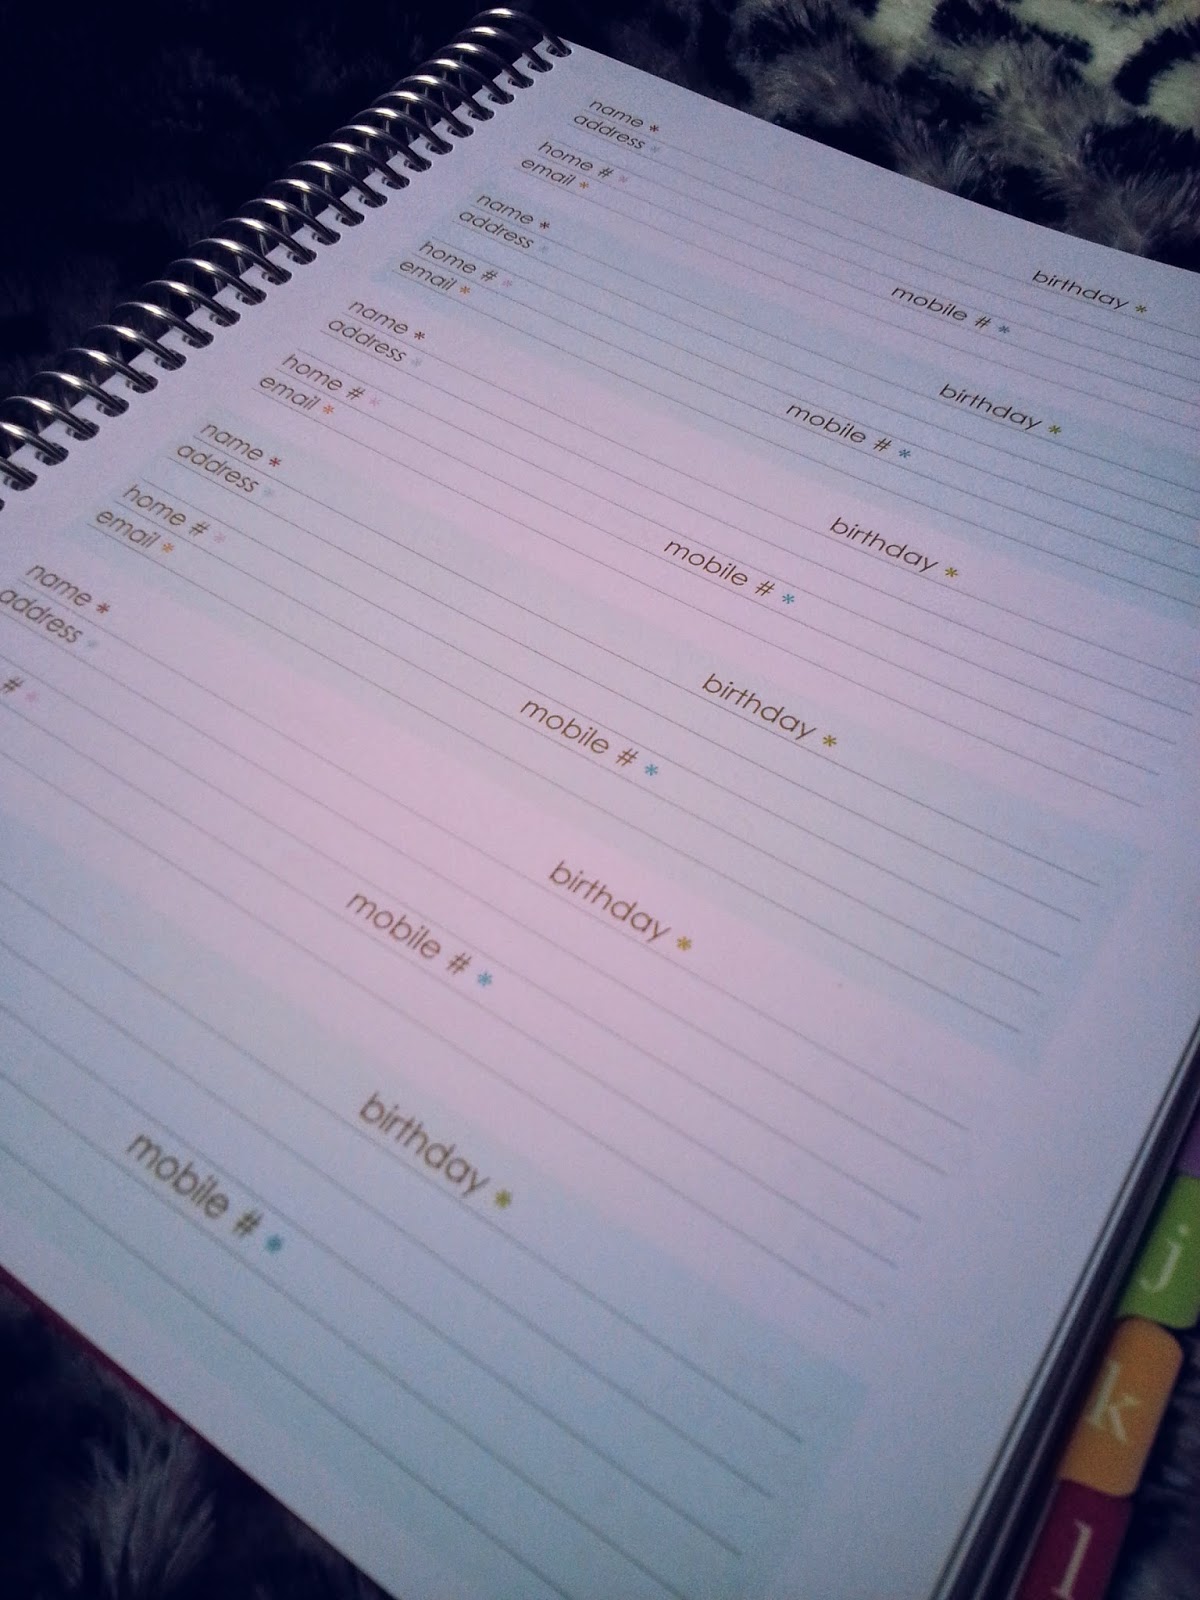 name * birthday *
address *
home # * mobile # *
email *
name * birthday *
address *
home # * mobile # *
email *
name * birthday *
address *
home # * mobile # *
email *
name * birthday *
address *
home # * mobile # *
email *
name * birthday *
address *
# * mobile # *
birthday *
mobile # *
j
k
l